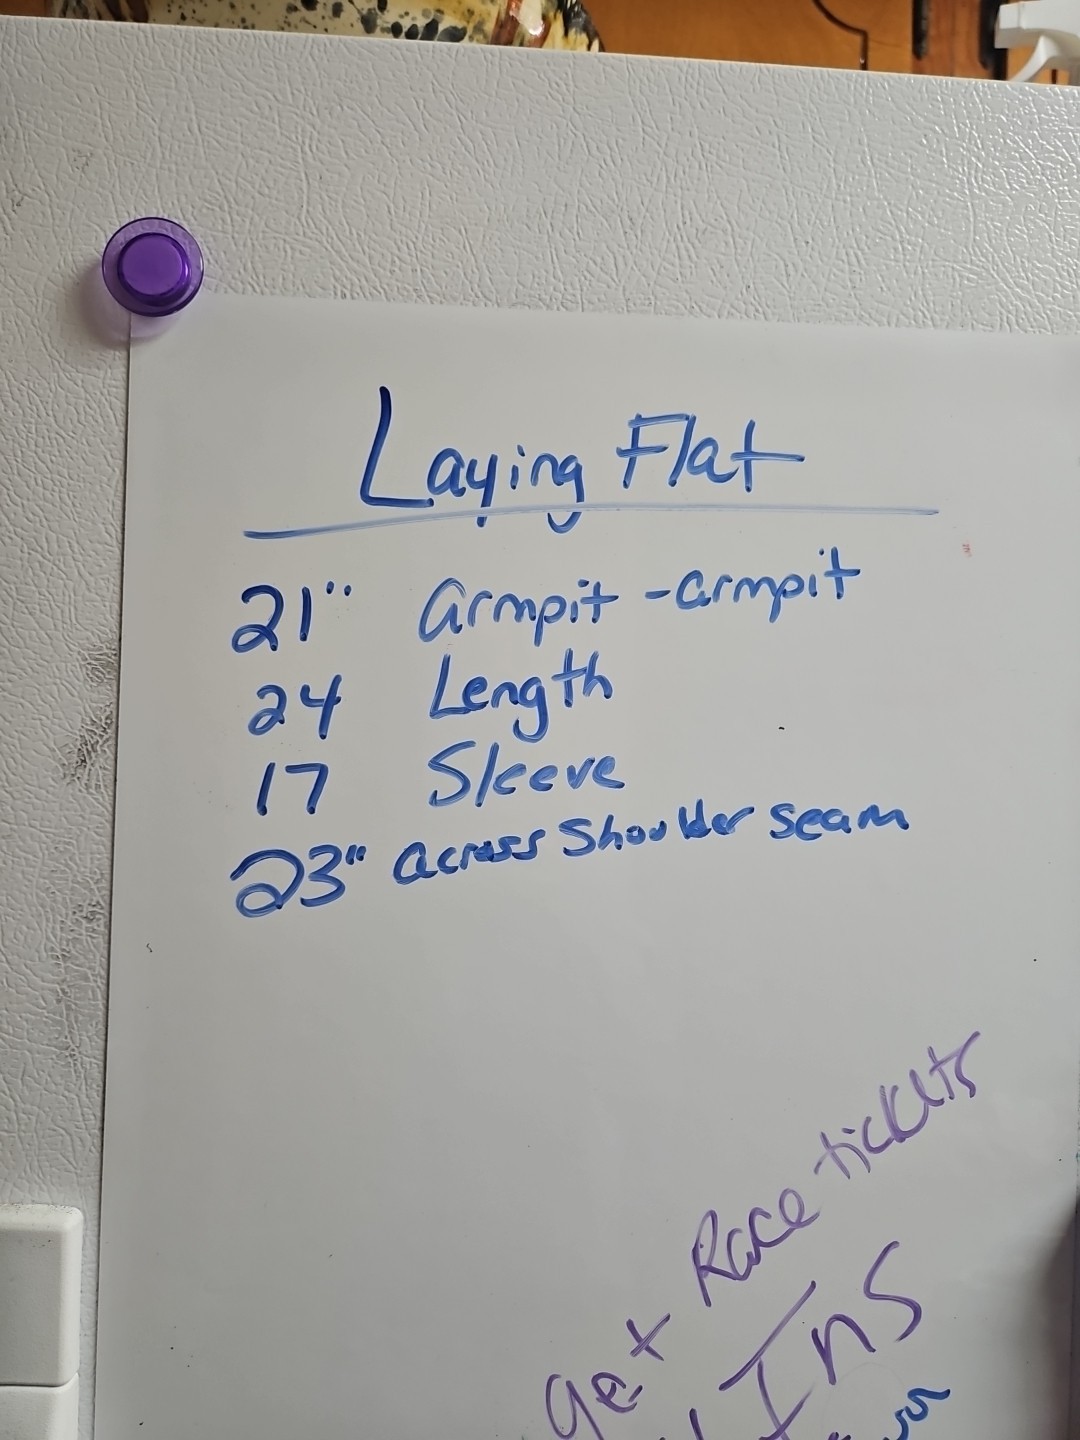 Laying Flat
21" armpit - armpit
24 Length
17 Sleeve
23" across Shoulder Seam
get Race tickets
Ins